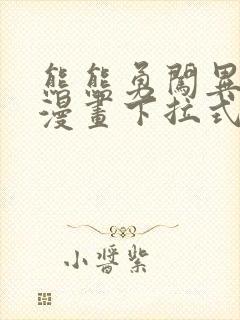 熊熊勇闖異
漫畫下拉式
小醬紫